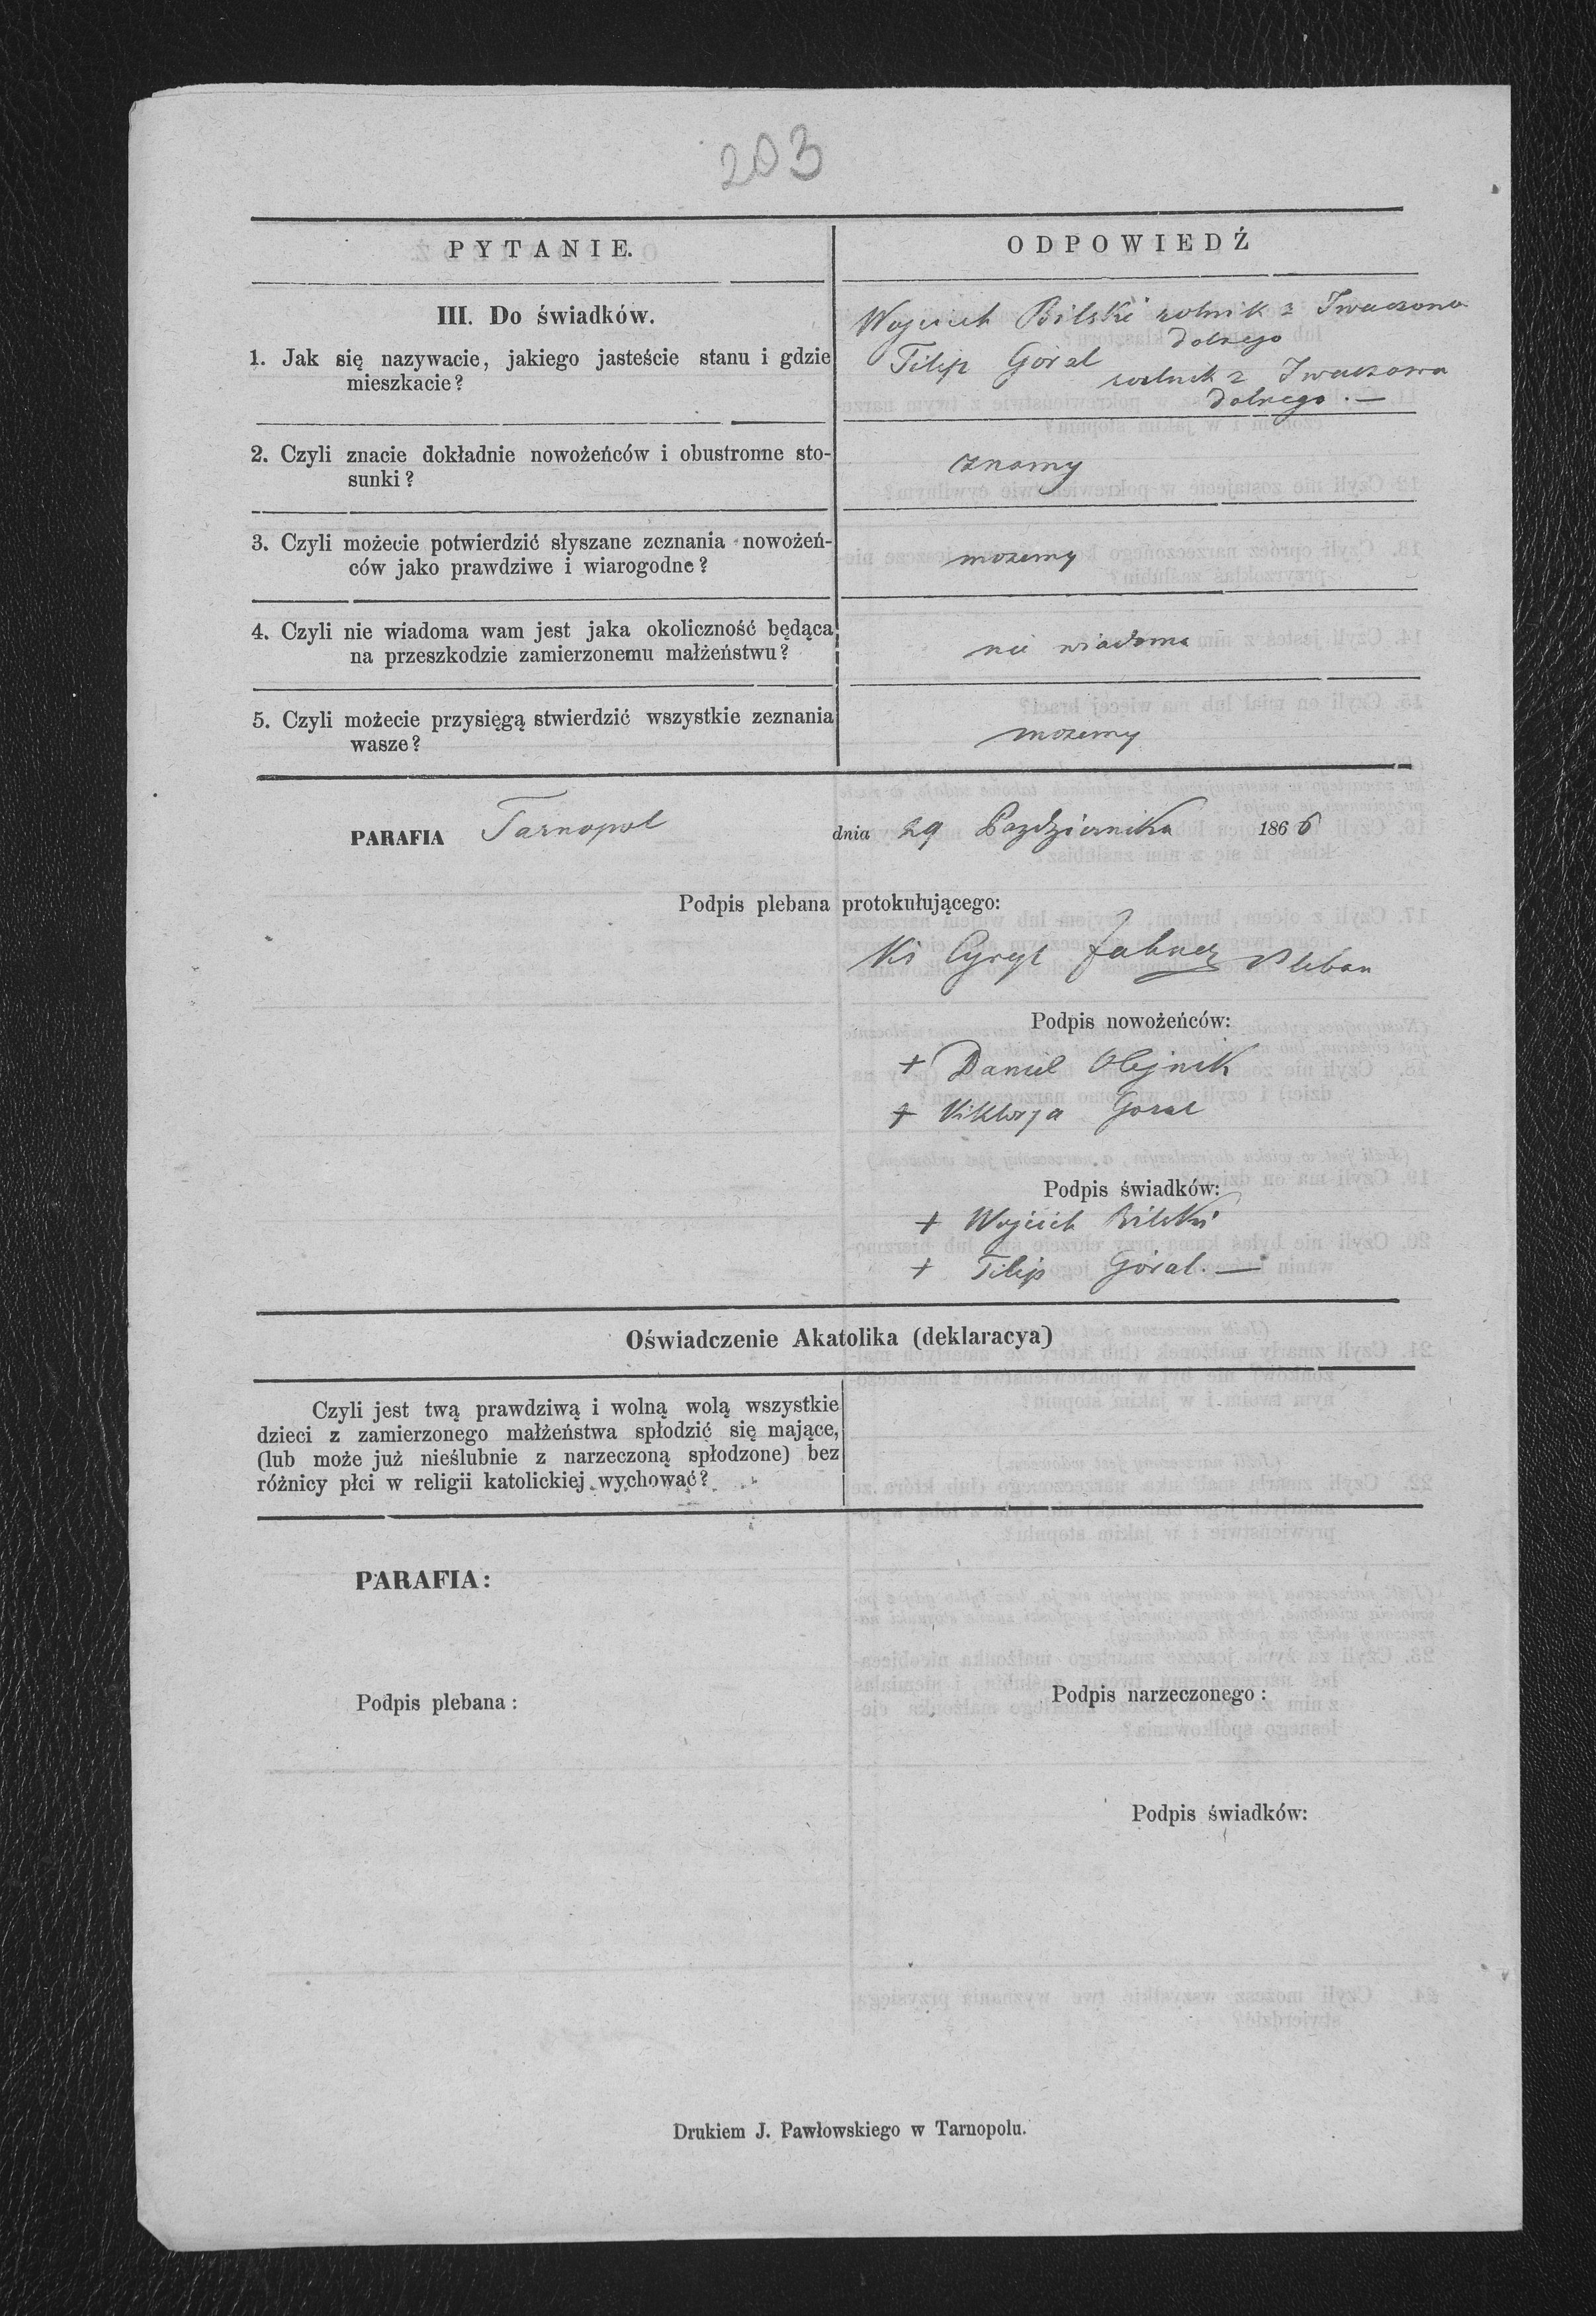 203
PYTANIE.
ODPOWIEDŹ
III. Do świadków.
1. Jak się nazywacie, jakiego jasteście stanu i gdzie
mieszkacie?
Wojciech Bilski rolnik z Iwaczowa
dolnego
Filip Góral rolnik z Iwaczowa
dolnego. —
2. Czyli znacie dokładnie nowożeńców i obustronne sto-
sunki?
znamy
3. Czyli możecie potwierdzić słyszane zeznania nowożeń-
ców jako prawdziwe i wiarogodne?
możemy
4. Czyli nie wiadoma wam jest jaka okoliczność będąca
na przeszkodzie zamierzonemu małżeństwu?
nie wiadoma
5. Czyli możecie przysięgą stwierdzić wszystkie zeznania
wasze?
możemy
PARAFIA Tarnopol dnia 29 Października 1866
Podpis plebana protokułującego:
Ks Cyryl Pleban
Podpis nowożeńców:
+ Daniel Olejnik
+ Viktorja Goral
Podpis świadków:
+ Wojciech Bilski
+ Filip Góral. —
Oświadczenie Akatolika (deklaracya)
Czyli jest twą prawdziwą i wolną wolą wszystkie
dzieci z zamierzonego małżeństwa spłodzić się mające,
(lub może już nieślubnie z narzeczoną spłodzone) bez
różnicy płci w religii katolickiej wychować?
PARAFIA:
Podpis plebana :
Podpis narzeczonego :
Podpis świadków:
Drukiem J. Pawłowskiego w Tarnopolu.